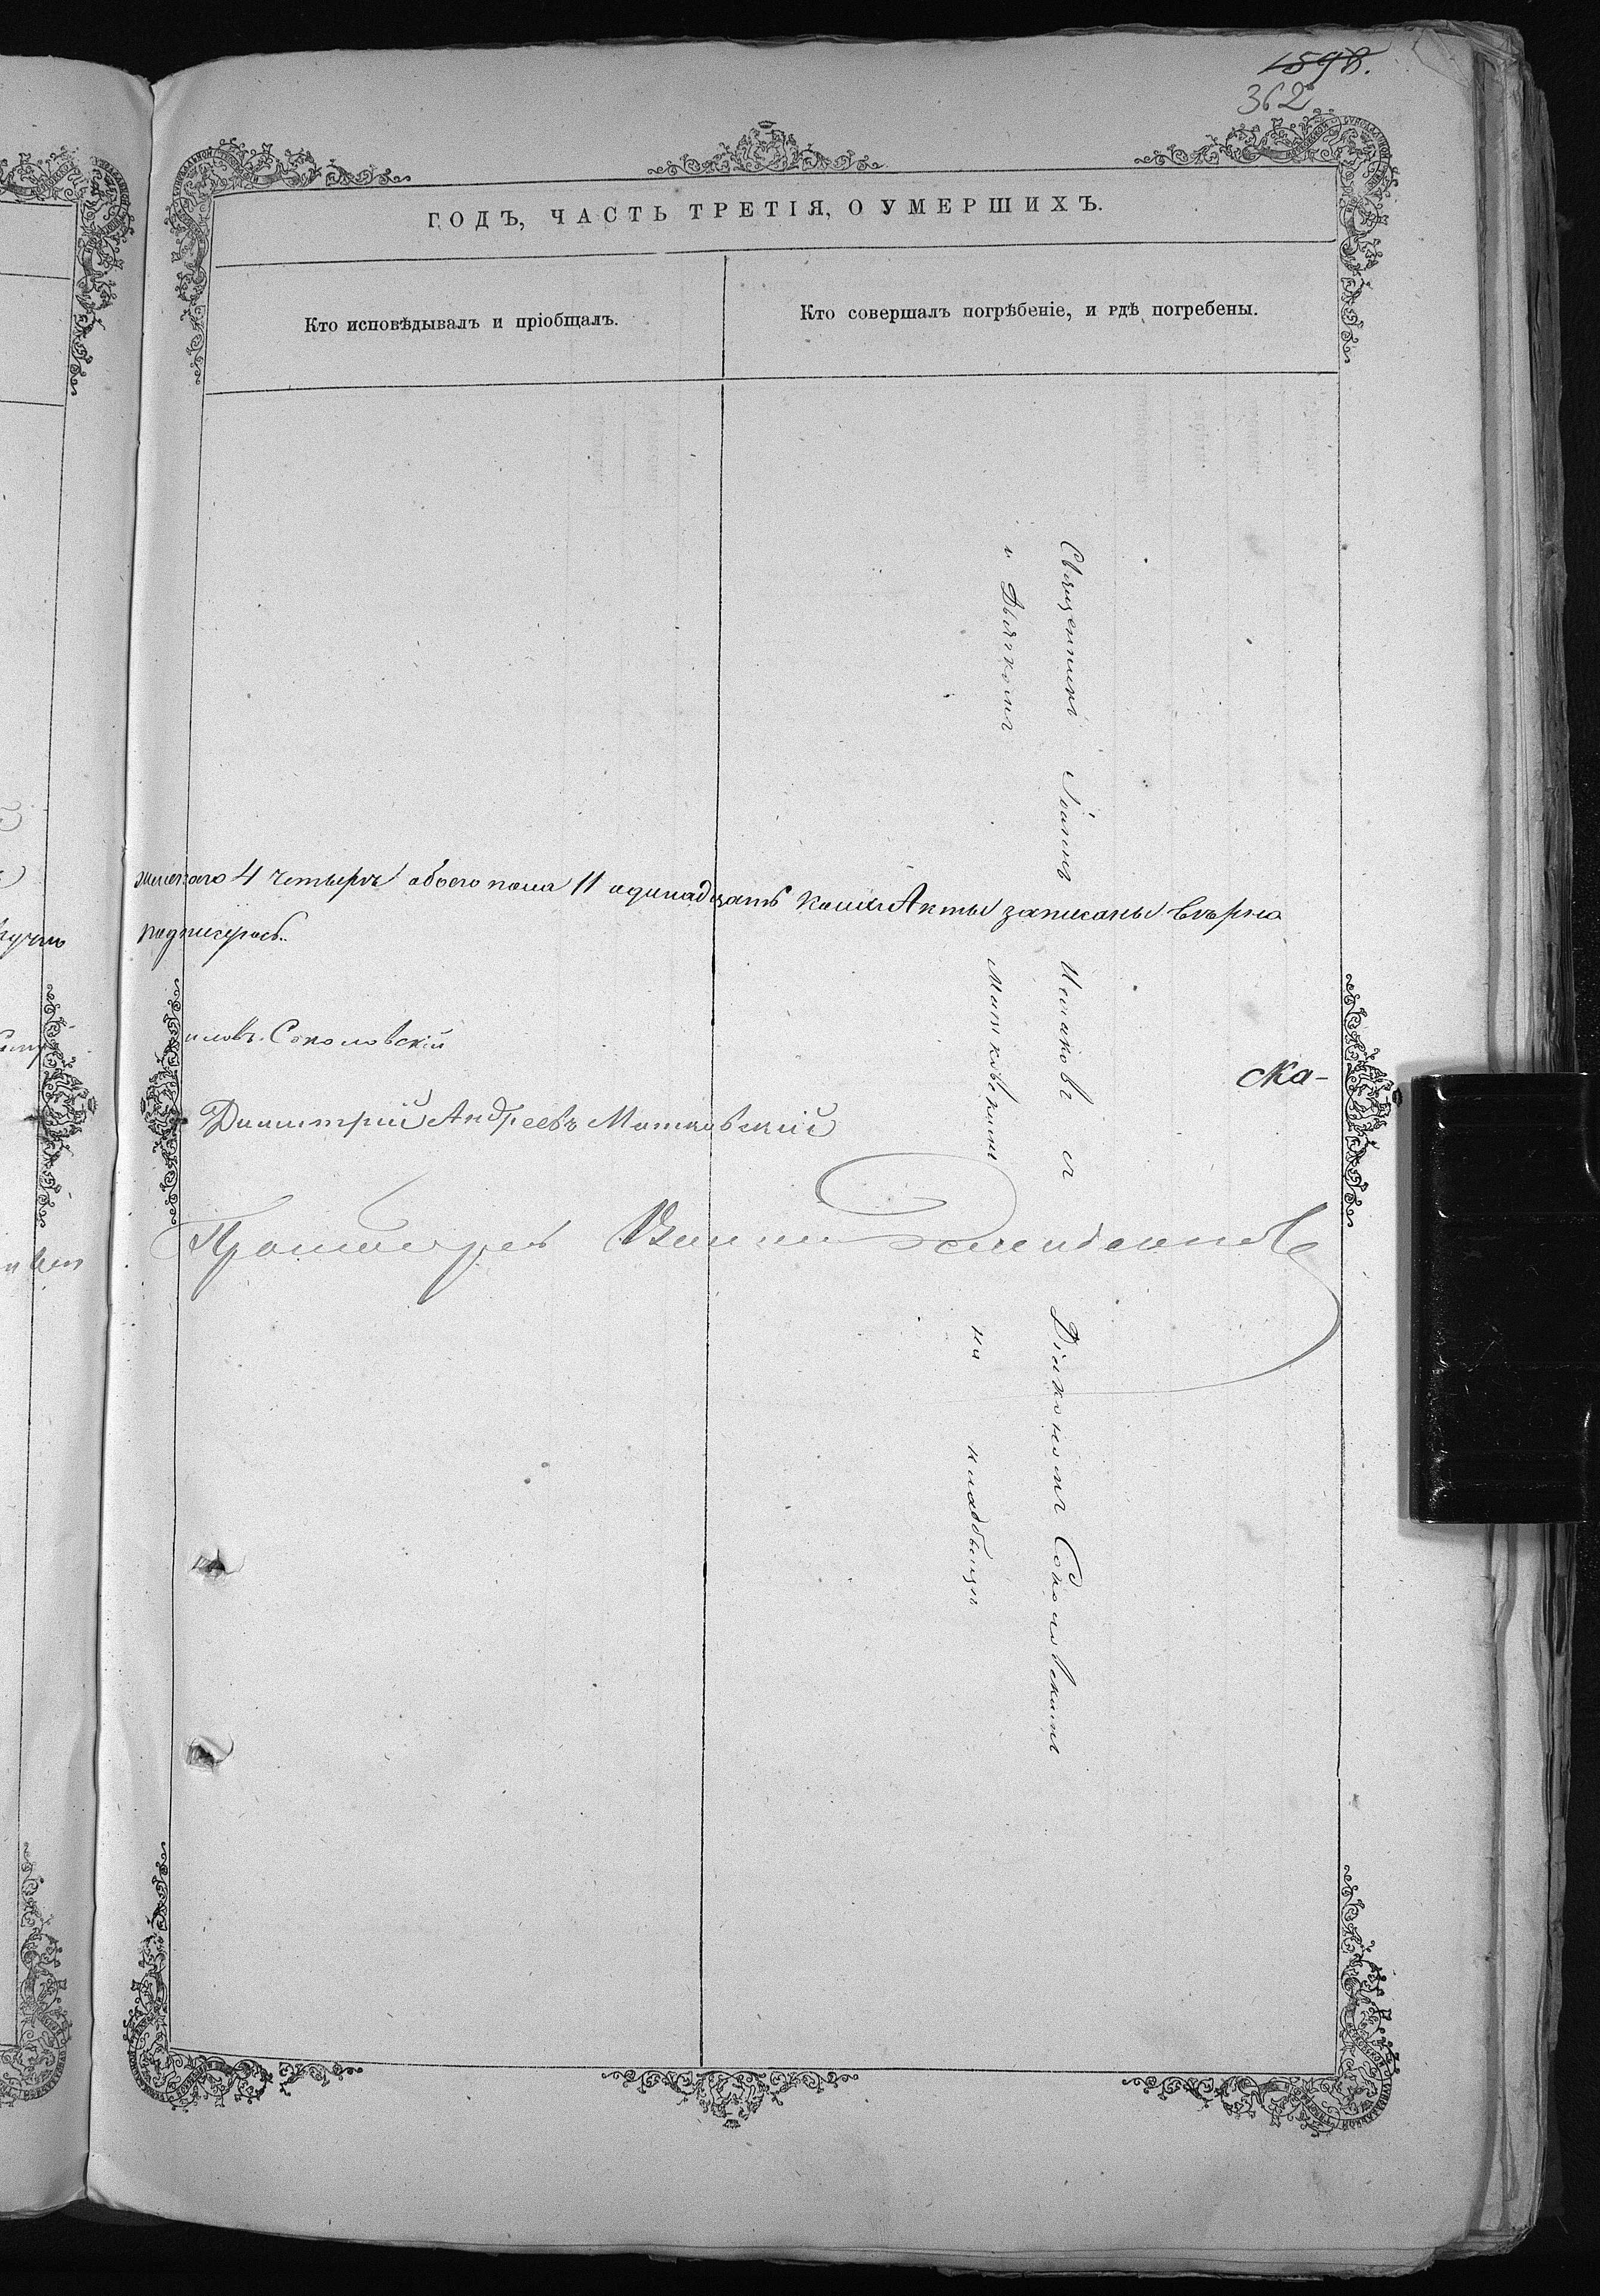 1598.
362
ГОДЪ, ЧАСТЬ ТРЕТІЯ, О УМЕРШИХЪ.
Кто исповѣдывалъ и пріобщалъ.
Кто совершалъ погрѣбеніе, и гдѣ погребены.
Священникъ Іоаннъ Исааковъ съ Діакономъ Соколовскимъ
и Дьячкомъ Матковскимъ на кладбищѣ
женскаго 4 четыре обоего пола 11 одинадцать Акты записаны вѣрно
Соколовскій
Ка-
Димитрій Андреевъ Матковскій